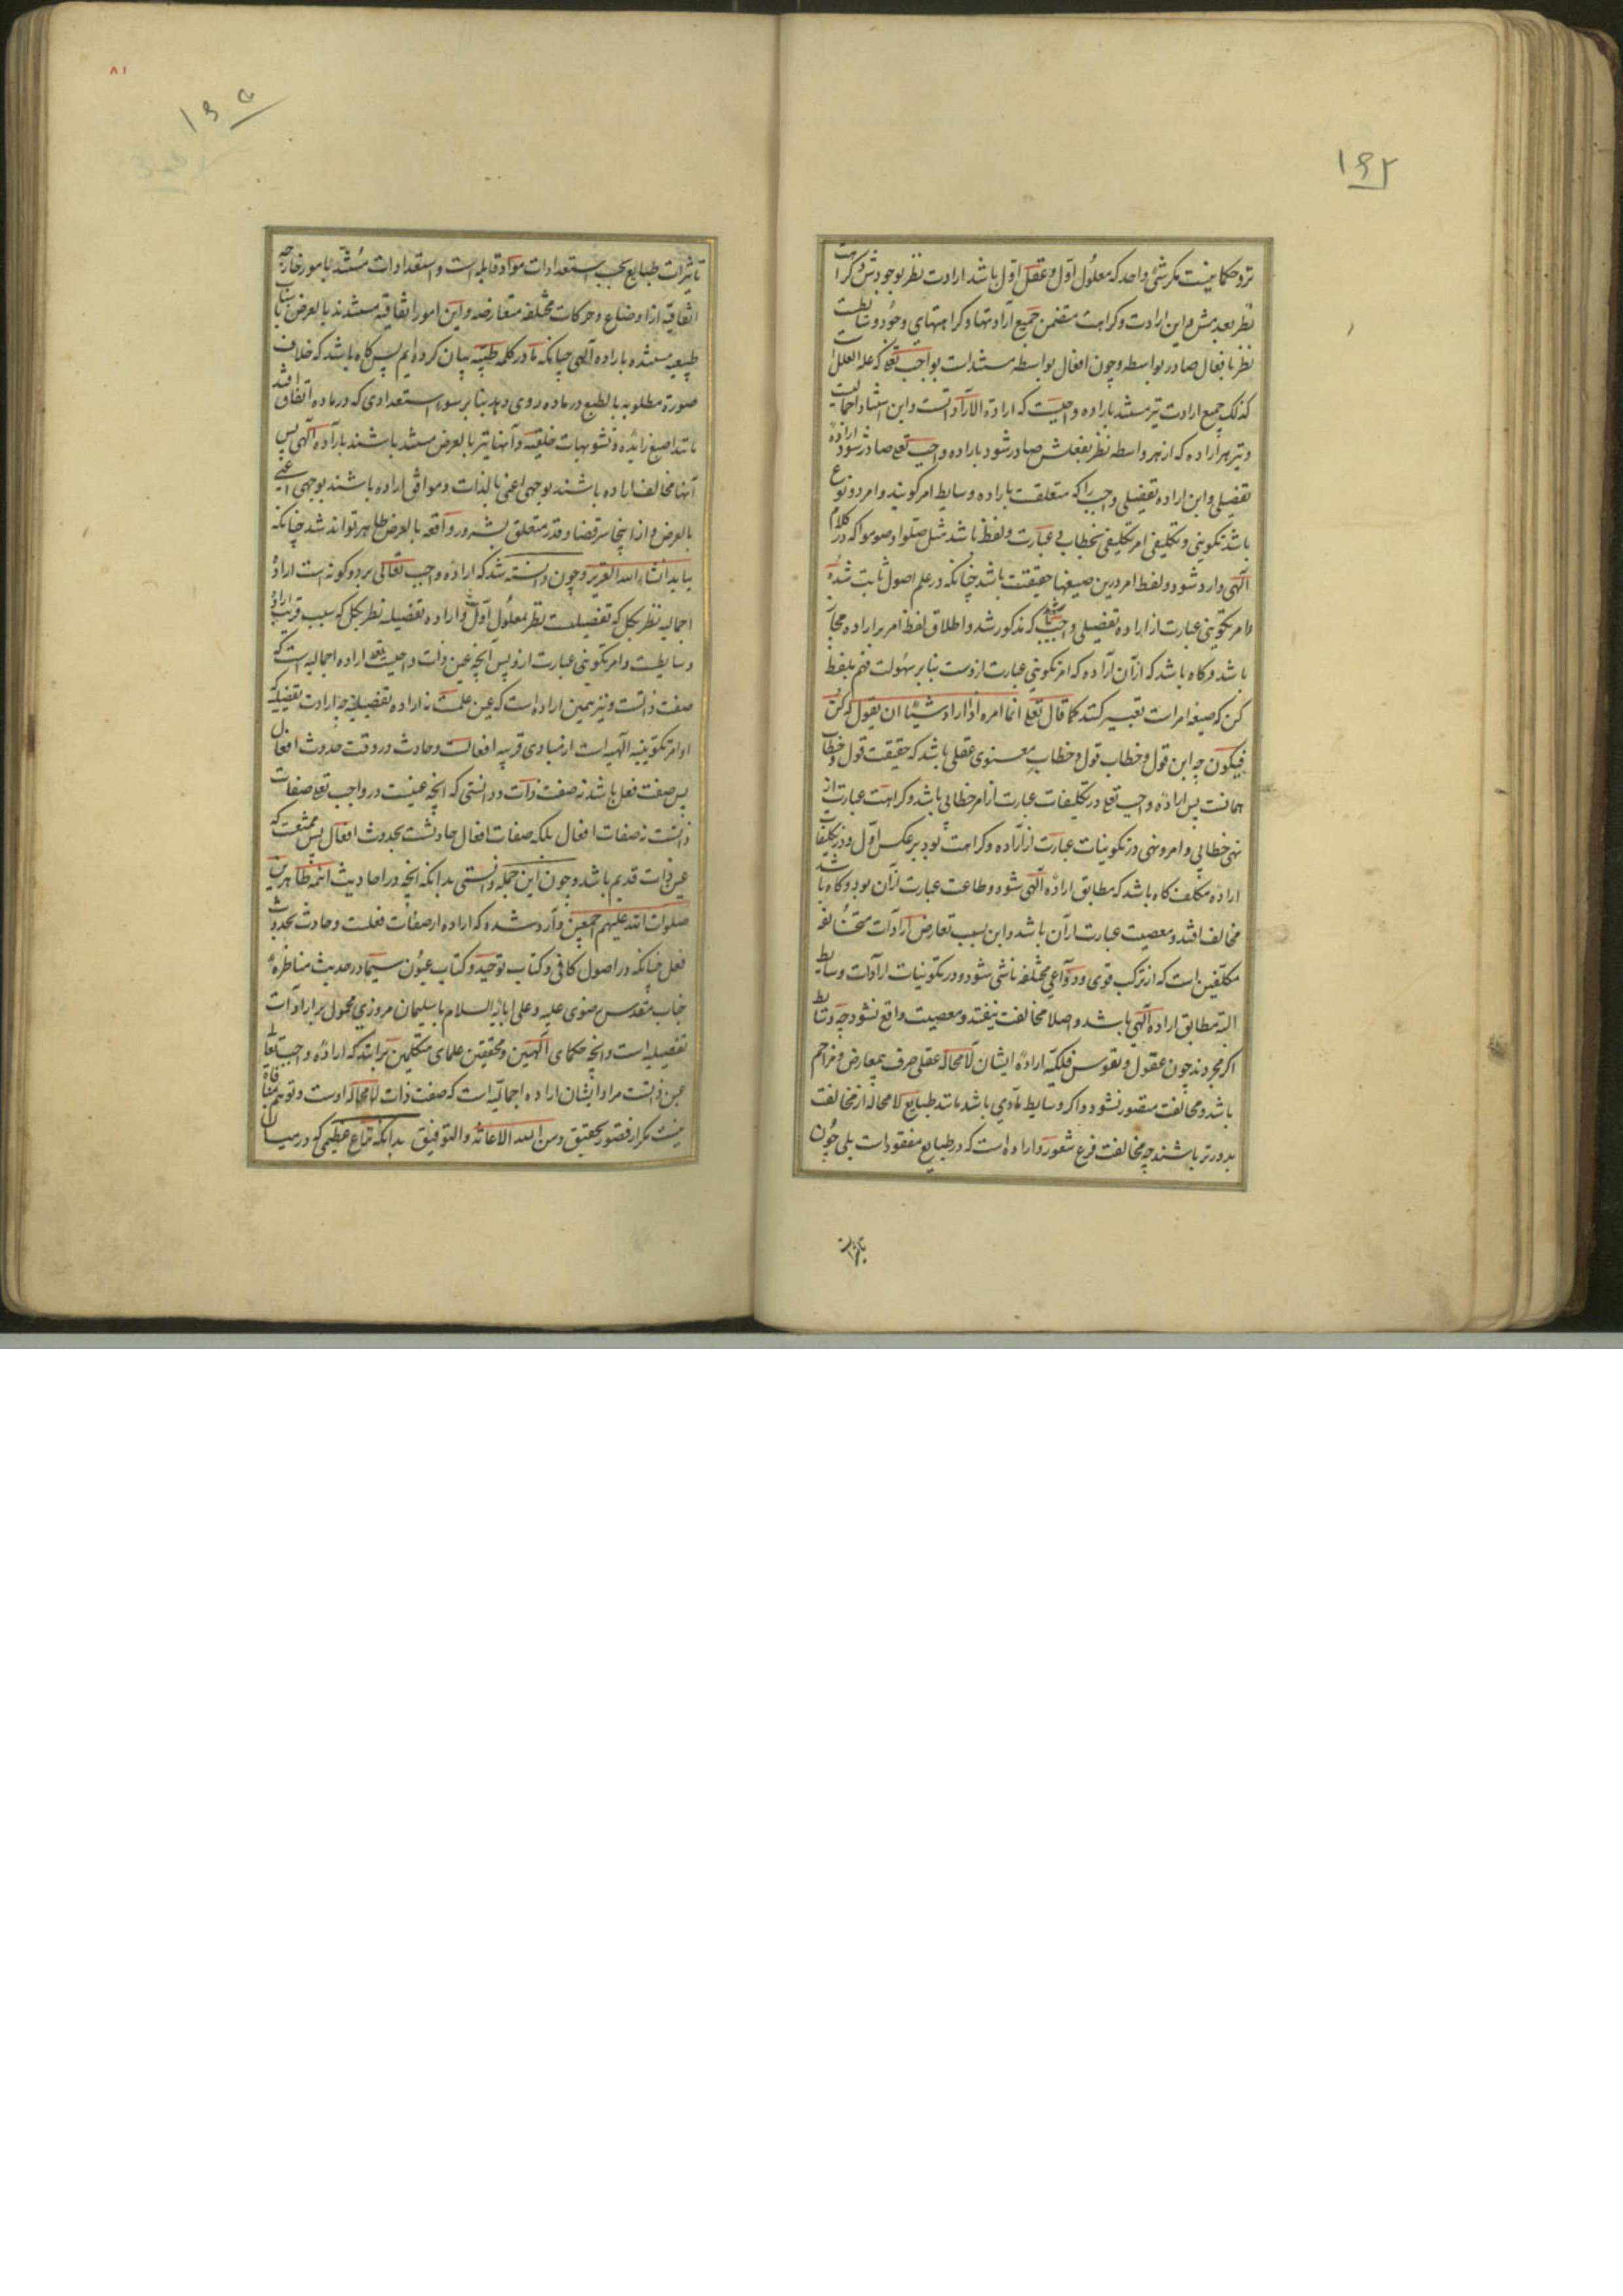 ۱۶۲
نزد حکما نیست مگر شیء واحد که معلول اول و عقل اول باشد ارادت نظر بوجودش و کراهت
نظر بعدمش و این ارادت و کراهت متضمن جمیع ارادتها و کراهتهای وجود وسایطست
نظر بافعال صادر بواسطه و چون افعال بواسطه مستند است بواجب تعه که علة العلل
کذلک جمیع ارادت نیز مستند باراده واجبست که ارادة الارادات است و این استناد اجمالیست
و نیز هر اراده که از هر واسطه نظر بفعلش صادر شود باراده واجب تعه صادر شود اراده
تفضیلی و این اراده تفضیلی واجب را که متعلقست باراده وسایط امر گویند و امر دو نوع
باشد تکوینی و تکلیفی امر تکلیفی بخطاب و عبارت و لفظ باشد مثل صلوا و صوموا که در کلام
الهی وارد شود و لفظ امر درین صیغها حقیقت باشد چنانکه در علم اصول ثابت شده
و امر تکوینی عبارت از اراده تفضیلی واجب که مذکور شد و اطلاق لفظ امر بر اراده مجاز
باشد و گاه باشد که از آن اراده که امر تکوینی عبارت ازوست بنا بر سهولت فهم بلفظ
کن که صیغه امرات تعبیر کنند کما قال تعه انما امره اذا اراد شیئا ان یقول له کن
فیکون چه این قول و خطاب قول و خطاب معنوی عقلی باشد که حقیقت قول و خطاب
همانست پس اراده واجب تعه در تکلیفات عبارت از امر خطابی باشد و کراهت عبارت از
نهی خطابی و امر و نهی در تکوینات عبارت از اراده و کراهت بود بر عکس اول و در تکلیفات
اراده مکلف گاه باشد که مطابق اراده الهی شود و طاعت عبارت از آن بود و گاه باشد
مخالف افتد و معصیت عبارت از آن باشد و این بسبب تعارض ارادات مختلفه
مکلفین است که از ترکب قوی و دواعی مختلفه ناشی شود و در تکوینات ارادات وسایط
البته مطابق اراده الهی باشد و اصلا مخالفت نیفتد و معصیت واقع نشود چه وسایط
اگر مجردند چون عقول و نفوس فلکیه اراده ایشان لامحاله عقلی صرف بیمعارض و مزاحم
باشد و مخالفت متصور نشود و اگر وسایط مادی باشد مانند طبایع لامحاله از مخالفت
بدورتر باشند چه مخالفت فرع شعور و اراده است که در طبایع مفقود است بلی چون
تاثیرات
۸۱
تاثیرات طبایع بحسب استعدادات مواد قابله است و استعدادات مستند بامور خارجه
اتفاقیه از اوضاع و حرکات مختلفه متعارضه و این امور اتفاقیه مستندند بالعرض باسباب
طبیعیه مستنده باراده الهی چنانکه ما در کلمه طیبه بیان کرده‌ایم پس گاه باشد که خلاف
صورة مطلوبه بالطبع در ماده روی دهد بنا بر سوء استعدادی که در ماده اتفاق افتد
مانند اصبع زایده و تشویهات خلقیه و آنها نیز بالعرض مستند باشند باراده الهی پس
آنها مخالف اراده باشند بوجهی اعنی بالذات و موافق اراده باشند بوجهی اعنی
بالعرض و از اینجا سر قضا و قدر متعلق بشرور واقعه بالعرض ظاهر تواند شد چنانکه
بیاید انشاء الله العزیز و چون دانسته شد که اراده واجب تعالی بر دو گونه است اراده
اجمالیه نظر بکل که تفضیلست نظر بمعلول اول و اراده تفضیلیه نظر بکل که سبب قریب اراده
وسایطست و امر تکوینی عبارت ازو پس آنچه عین ذات واجبست تعه اراده اجمالیه است که
صفت ذاتست و نیز همین اراده است که عین علمست نه اراده تفضیلیه چه ارادت تفضیلیه که
اوامر تکوینیه الهیه است از مبادی قریبه افعالست و حادث در وقت حدوث افعال
پس صفت فعل باشد نه صفت ذات و دانستی که آنچه عینست در واجب تعه صفات
ذاتست نه صفات افعال بلکه صفات افعال حادثست بحدوث افعال پس ممتنعست که
عین ذات قدیم باشد و چون این جمله دانستی بدانکه آنچه در احادیث ائمه طاهرین
صلوات الله علیهم اجمعین وارد شده که اراده از صفات فعلست و حادث بحدوث
فعل چنانکه در اصول کافی و کتاب توحید و کتاب عیون سیما در حدیث مناظره
جناب مقدس رضوی علیه و علی ابائه السلام با سلیمان مروزی محمول بر ارادات
تفصیلیه است و آنچه حکمای الهیین و محققین علمای متکلمین برانند که اراده واجب تعالی
عین ذاتست مراد ایشان اراده اجمالیه است که صفت ذات لامحاله اوست و توهم منافاة
نیست مگر از قصور تحقیق و من الله الاعانة و التوفیق بدانکه نزاع عظیمی که در میان